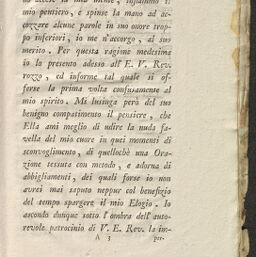 mio pensiero, e spinse la mano ad ac-
cozzare alcune parole in suo onore trop-
po inferiori, io me n'accorgo, al suo
merito. Per questa ragione medesima
io lo presento adesso all' E. V. Rev.
rozzo, ed informe tal quale si of-
ferse la prima volta confusamente al
mio spirito. Mi lusinga però del suo
benigno compatimento il pensiere, che
Ella ami meglio di udire la nuda fa-
vella del mio cuore in quei momenti di
sconvoglimento, di quellochè una Ora-
zione tessuta con metodo, e adorna di
abbigliamenti, dei quali forse io non
avrei mai saputo neppur col benefizio
del tempo spargere il mio Elogio. Io
ascondo dunque sotto l'ombra dell' auto-
revole patrocinio di V. E. Rev. la im-
A 3 per-